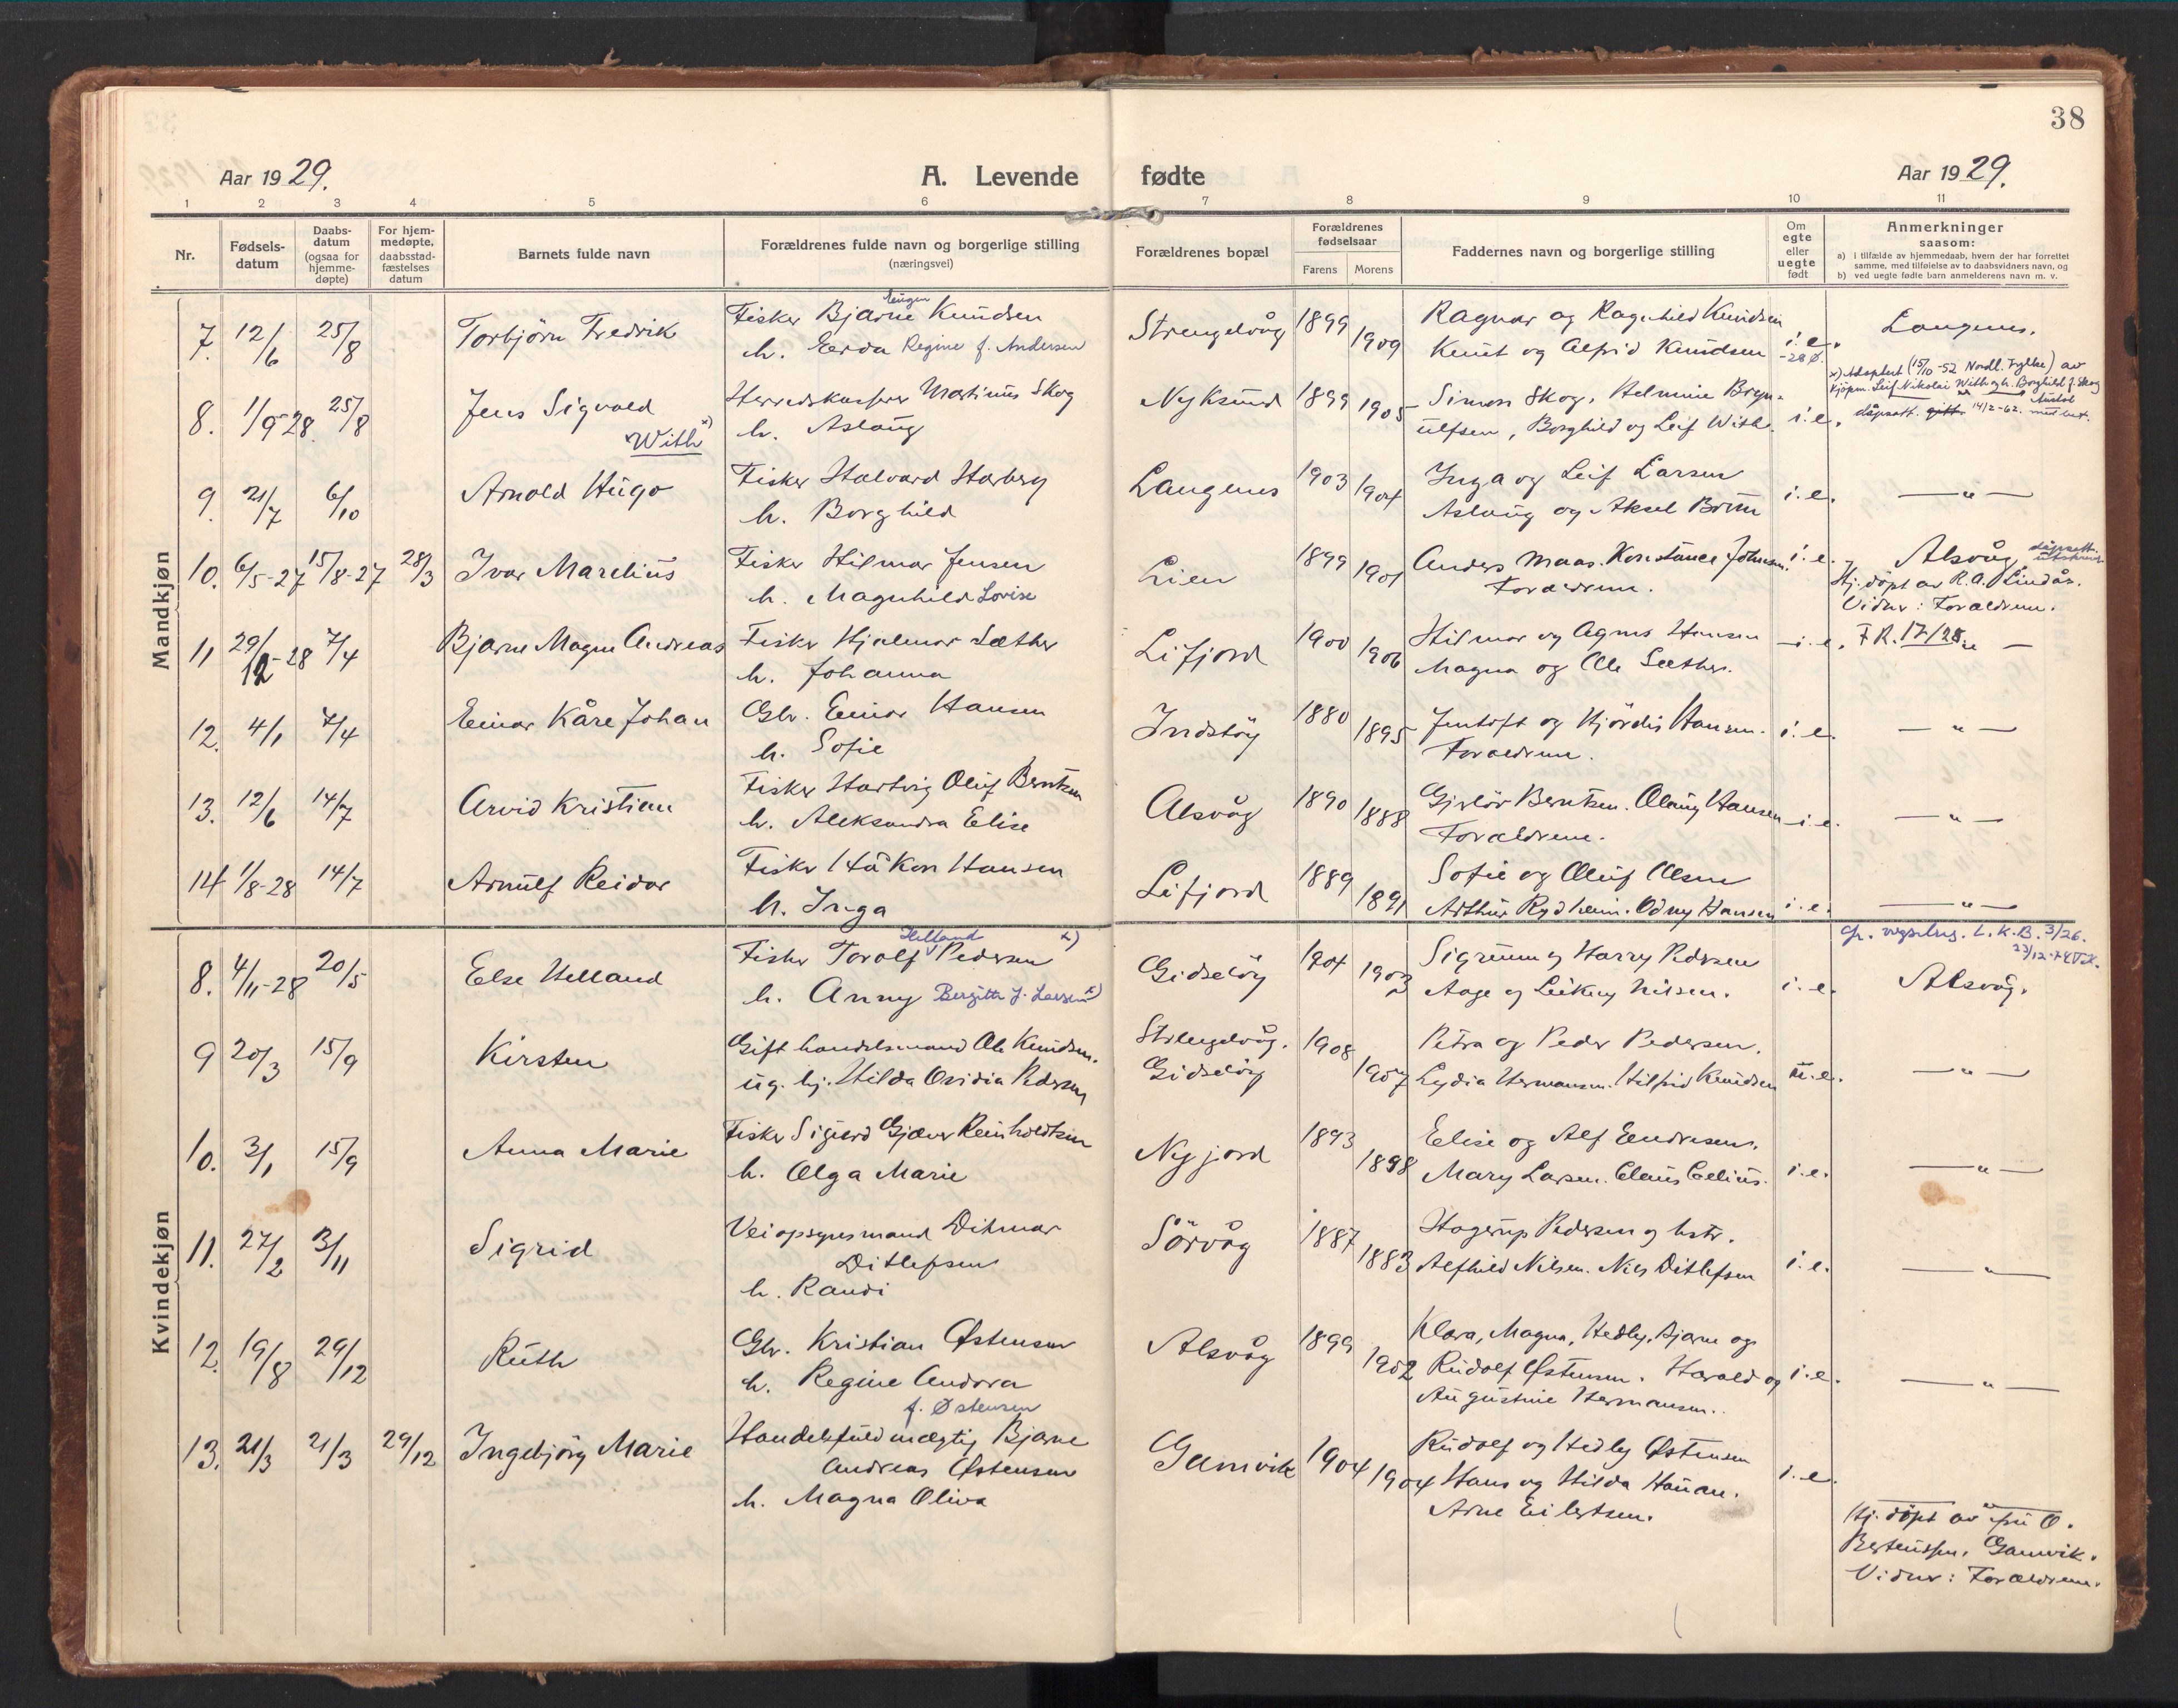 38
Aar 1929.
A. Levende fødte
Aar 1929.
1 2 3 4 5 6 7 8 9 10 11
Nr.
Fødsels-
datum
Daabs-
datum
(ogsaa for
hjemme-
døpte)
For hjem-
medøpte,
daabsstad-
fæstelses
datum
Barnets fulde navn
Forældrenes fulde navn og borgerlige stilling
(næringsvei)
Forældrenes bopæl
Forældrenes
fødselsaar
Farens Morens
Faddernes navn og borgerlige stilling
Om
egte
eller
uegte
født
Anmerkninger
saasom:
a) i tilfælde av hjemmedaab, hvem der har forrettet
samme, med tilføielse av to daabsvidners navn, og
b) ved uegte fødte barn anmelderens navn m. v.
Mandkjøn
7. 12/6 25/8 Torbjörn Fredrik
Fisker Bjarne Eugen Knudsen
h. Gerda Regine f. Andersen
Strengelvåg 1899 1909
Ragnar og Ragnhild Knudsen
Knut og Alfrid Knudsen
i.e. -28 Ø.
Langenes.
8. 1/9-28. 25/8 Jens Sigvald
With x)
Herredskasserer Martinus Skog
h. Aslaug
Nyksund 1899 1905
Simon Skog, Helmine Bryn-
ulfsen, Borghild og Leif With.
i.e.
x) Adoptert (15/10-52 Nordl. Fylke) av
Kjöpm. Leif Nikolai With og h. Borghild f. Skog
dåpsatt. 14/2-62.
9. 21/7 6/10 Arnold Hugo
Fisker Halvard Storberg
h. Borghild
Langenes 1903 1904
Inga og Leif Larsen
Aslaug og Aksel Brun
i.e.
— " —
10. 6/5-27 15/8-27 28/3 Ivar Marelius
Fisker Hilmar Jensen
h. Magnhild Lovise
Lien 1899 1901
Anders Maas. Konstance Johnsen.
Foraldrene.
i.e.
Alsvåg. dåpsatt. utskrevet
Hj. döpt av R.A. Lindås.
Vidner: Foraldrene.
11 29/12-28 7/4 Bjarne Magne Andreas
Fisker Hjalmar Sæther
h. Johanna
Lifjord 1900 1906
Hilmar og Agnes Hansen
Magna og Ole Sæther.
i.e.
F.R. 17/28 " —
12. 4/1 7/4 Einar Kåre Johan
Gbr. Einar Hansen
h. Sofie
Indstöy 1880 1895
Jentoft og Hjördis Hansen.
Foraldrene.
i.e.
— " —
13. 12/6 14/7 Arvid Kristian
Fisker Hartvig Oluf Berntsen
h. Aleksandra Elise
Alsvåg 1890 1888
Gjerlöv Berntsen. Olaug Hansen
Foraldrene.
i.e.
— " —
14 1/8-28 14/7 Arnulf Reidar
Fisker Håkon Hansen
h. Inga
Lifjord 1889 1891
Sofie og Oluf Olsen
Arthur Rydheim. Odny Hansen
i.e.
— " —
Kvindekjøn
8. 4/11-28 20/5 Else Helland
Fisker Torolf Helland Pedersen x)
h. Anny Bergitte f. Larsen x)
Gidselöy 1904 1903
Sigrunn og Harry Pedersen
Aage og Leikny Nilsen.
i.e.
L.K.B. 3/26.
Alsvåg.
9 20/3 15/9 Kirsten
Gift handelsmand Ole Knudsen.
ug. hj. Hilda Ovidia Pedersen
Strengelvåg. Gidselöy 1908 1907
Petra og Peder Pedersen.
Lydia Hermansen. Hilfrid Knudsen
u.e.
— " —
10. 3/1 15/9 Anna Marie
Fisker Sigurd Gjæver Reinholdtsen
h. Olga Marie
Nyjord 1893 1898
Elise og Alf Endresen.
Mary Larsen. Claus Cellius.
i.e.
— " —
11. 27/2 3/11 Sigrid
Veiopsynsmand Ditmar
Ditlefsen
h. Randi
Sörvåg 1887 1883
Hagerup Pedersen og hstr.
Alfhild Nilsen. Nils Ditlefsen
i.e.
— " —
12. 19/8 29/12 Ruth
Gbr. Kristian Østensen
h. Regine Andora
f. Østensen
Alsvåg 1899 1902
Klara, Magna, Hedly, Bjarne og
Rudolf Østensen. Harald og
Augustine Hermansen.
i.e.
— " —
13. 21/3 21/3 29/12 Ingebjörg Marie
Handelsfuldmægtig Bjarne
Andreas Østensen
h. Magna Oliva
Gamvik 1904 1904
Rudolf og Hedly Østensen
Hans og Hilda Hauan.
Arne Eilertsen.
i.e.
— " —
Hj. döpt av fru O.
Berteussen, Gamvik.
Vidner: Foraldrene.